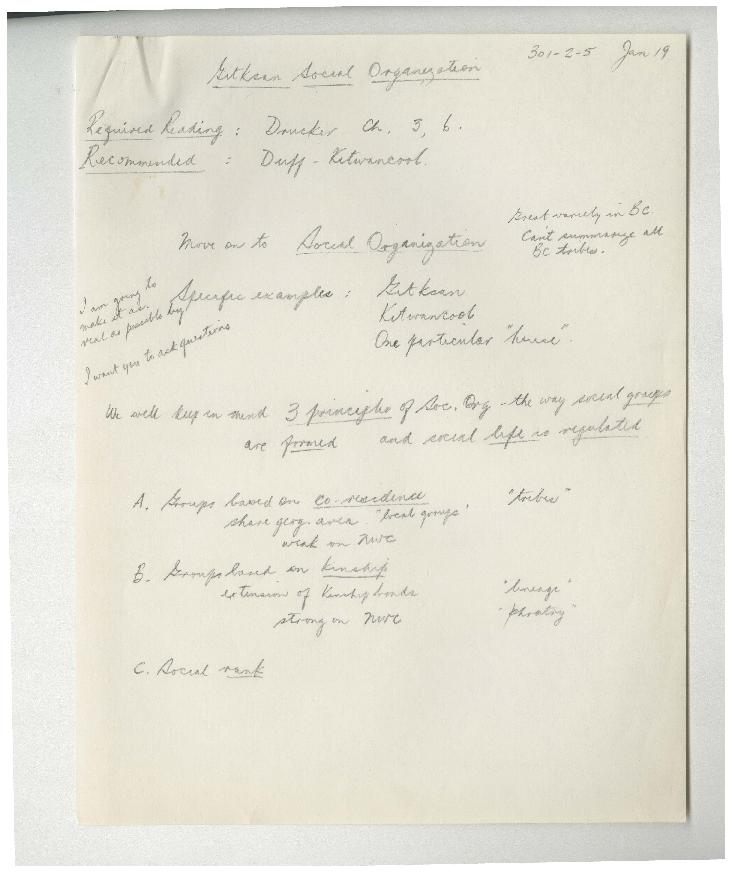 301-2-5 Jan 19
Gitksan Social Organization
Required Reading : Drucker Ch. 3, 6.
Recommended : Duff - Kitwancool.
Great variety in BC
Can't summarize all
BC tribes.
Move on to Social Organization
I am going to
make it as
real as possible by
I want you to ask questions
Specific examples : Gitksan
Kitwancool
One particular "house".
We will keep in mind 3 principles of Soc. Org - the way social groups
are formed and social life is regulated
A. Groups based on co-residence "tribes"
share geog. area. "local groups"
weak on NWC
B. Groups based on Kinship
extension of Kinship bonds "lineage"
strong on NWC "phratry"
C. Social rank